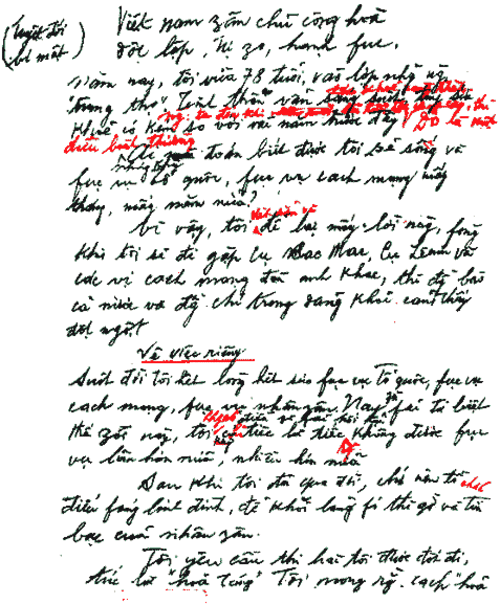 (Tuyệt đối
bí mật)
Việt nam zân chủ cộng hoà
độc lập, tự zo, hạnh fuc.
Năm nay, tôi vừa 78 tuổi, vào lớp những ng
"trung thọ". Tinh thần vẫn sáng suốt,
khoẻ có kém so với vài năm trước đây. Đó là một
điều bình thường.
đoán biết được tôi sẽ sống và
fục vụ tổ quốc, fục vụ cách mạng mấy
tháng, mấy năm nữa?
Vì vậy, tôi để lại mấy lời này, fòng
khi tôi sẽ đi gặp cụ Các Mác, cụ Lênin và
các vị cách mạng đàn anh khác, thì đ bào
cả nước và đ chí trong đảng khỏi cảm thấy
đột ngột.
Về việc riêng.
Suốt đời tôi hết lòng hết sức fục vụ Tổ quốc, fục vụ
cách mạng, fục vụ nhân zân. Nay zù fải từ biệt
không có điều gì fải hối hận
thế zới này, tôi chỉ tiếc là tiếc không được fục
vụ lâu hơn nữa, nhiều hơn nữa
Sau khi tôi đã qua đời, chớ nên tổ chức
điếu fúng linh đình, để khỏi lãng fí thì giờ và tiền
bạc của nhân zân.
Tôi yêu cầu thi hài tôi được đốt đi,
tức là "hoả táng". Tôi mong rằng cách "hoả